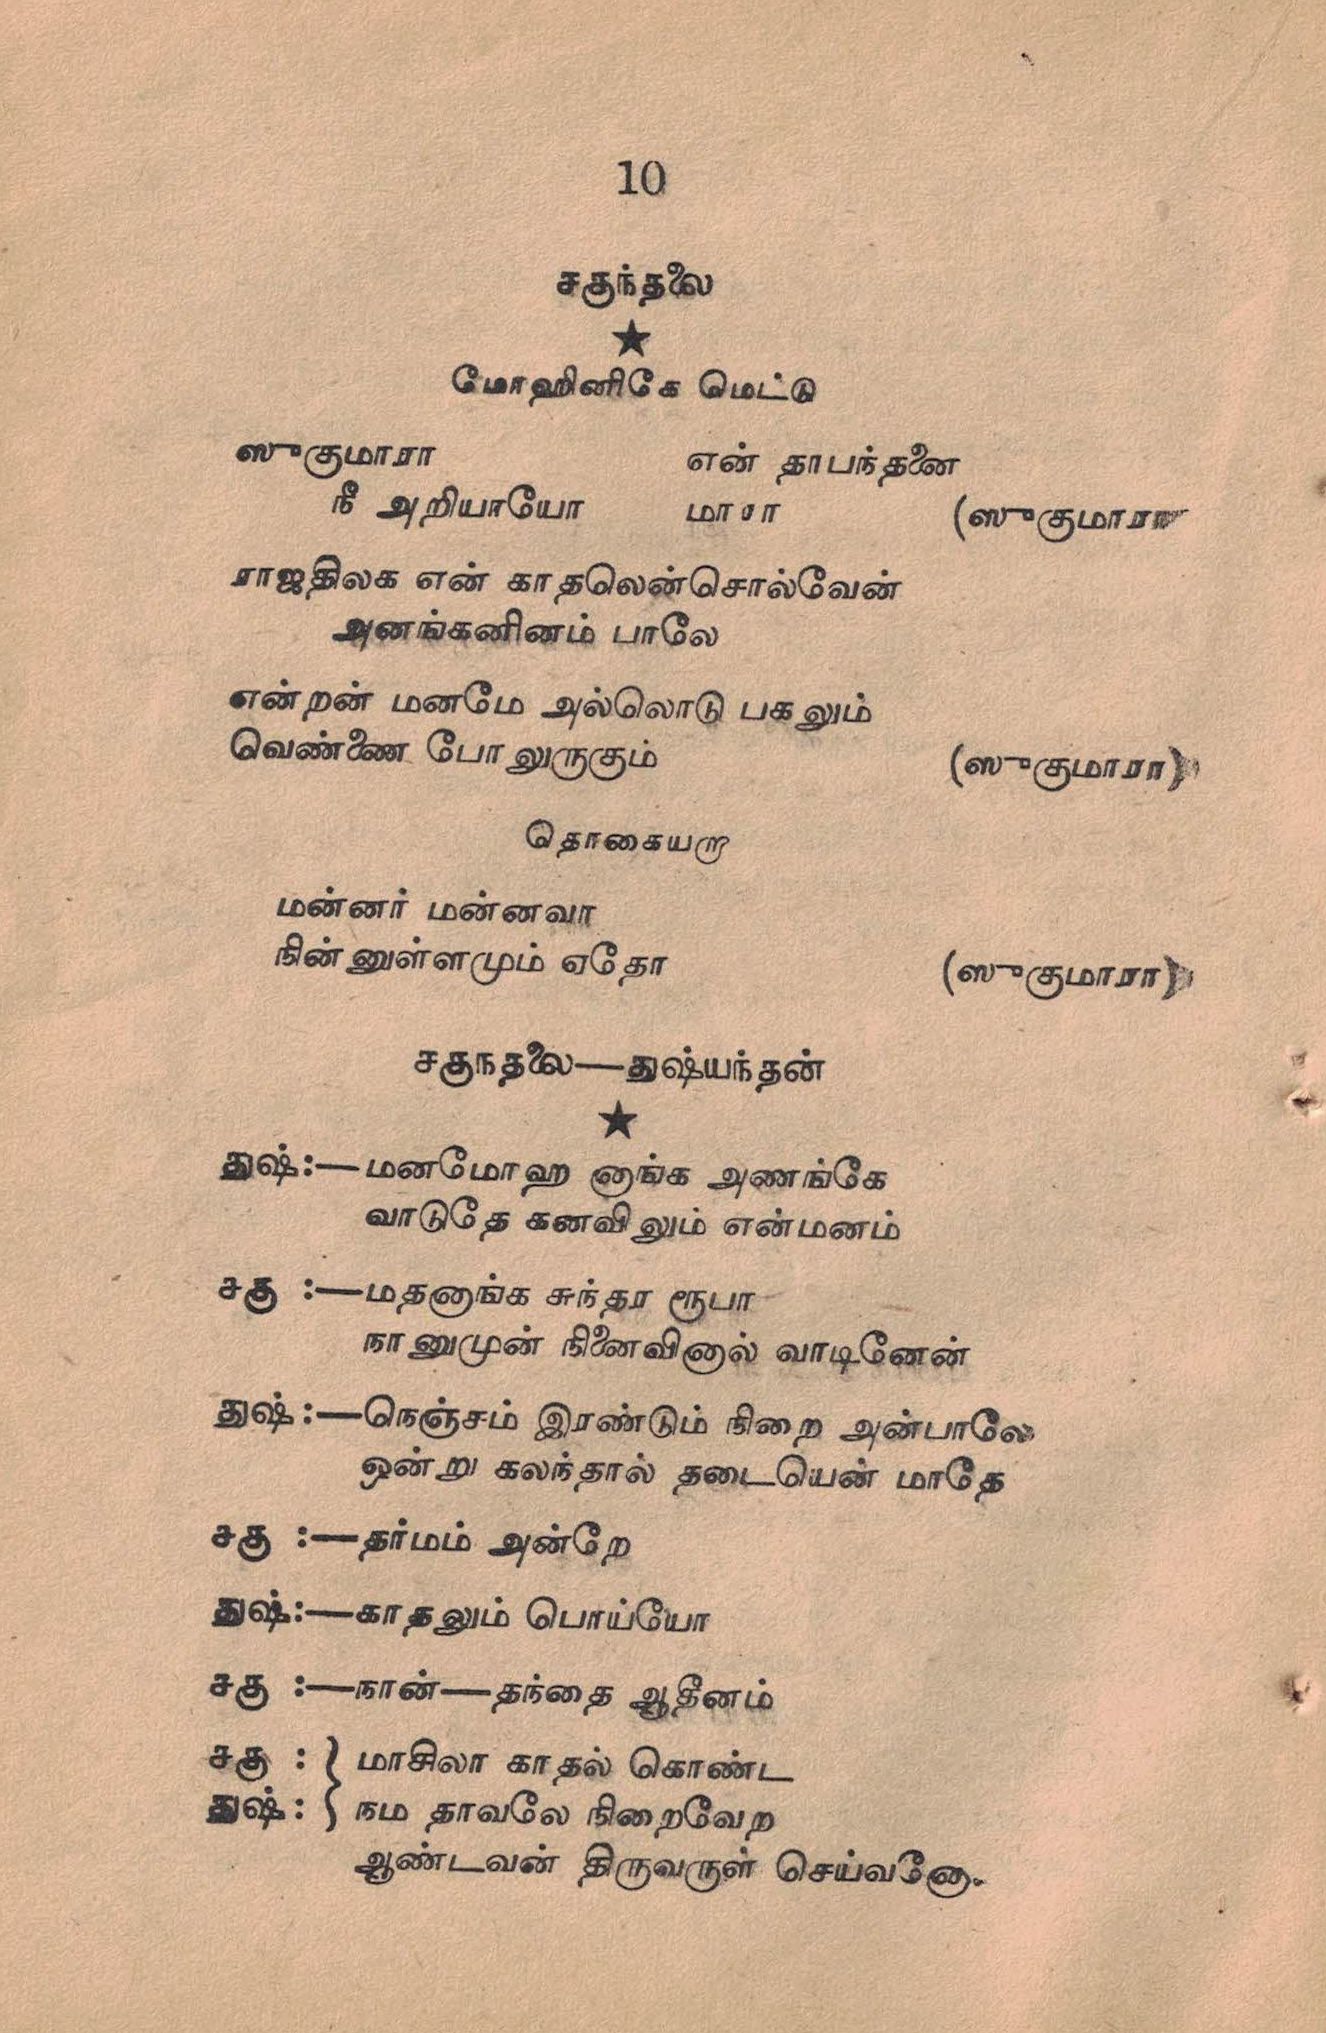 10
சகுந்தலை
★
மோஹினிகே மெட்டு
ஸுகுமாரா என் தாபந்தனை
நீ அறியாயோ மாரா (ஸுகுமாரா
ராஜதிலக என் காதலென்சொல்வேன்
அனங்கனினம் பாலே
என்றன் மனமே அல்லொடு பகலும்
வெண்ணை போலுருகும் (ஸுகுமாரா)
தொகையறா
மன்னர் மன்னவா
நின்னுள்ளமும் ஏதோ (ஸுகுமாரா)
சகுநதலை—துஷ்யந்தன்
★
துஷ்:—மனமோஹ னாங்க அணங்கே
வாடுதே கனவிலும் என்மனம்
சகு :—மதனாங்க சுந்தர ரூபா
நானுமுன் நினைவினால் வாடினேன்
துஷ்:—நெஞ்சம் இரண்டும் நிறை அன்பாலே
ஒன்று கலந்தால் தடையென் மாதே
சகு :—தர்மம் அன்றே
துஷ்:—காதலும் பொய்யோ
சகு :—நான்—தந்தை ஆதீனம்
சகு : } மாசிலா காதல் கொண்ட
துஷ்: } நம தாவலே நிறைவேற
ஆண்டவன் திருவருள் செய்வனோ.